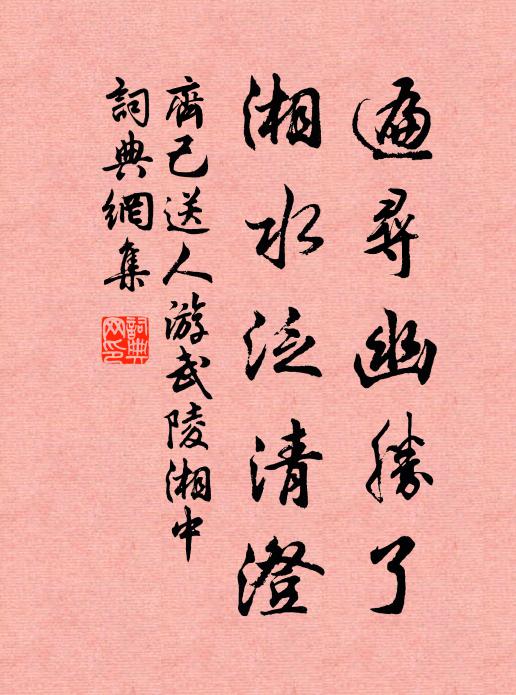 遍尋幽勝了
湘水泛清澄
齊己送人游武陵湘中
詞典網集
詞典網印